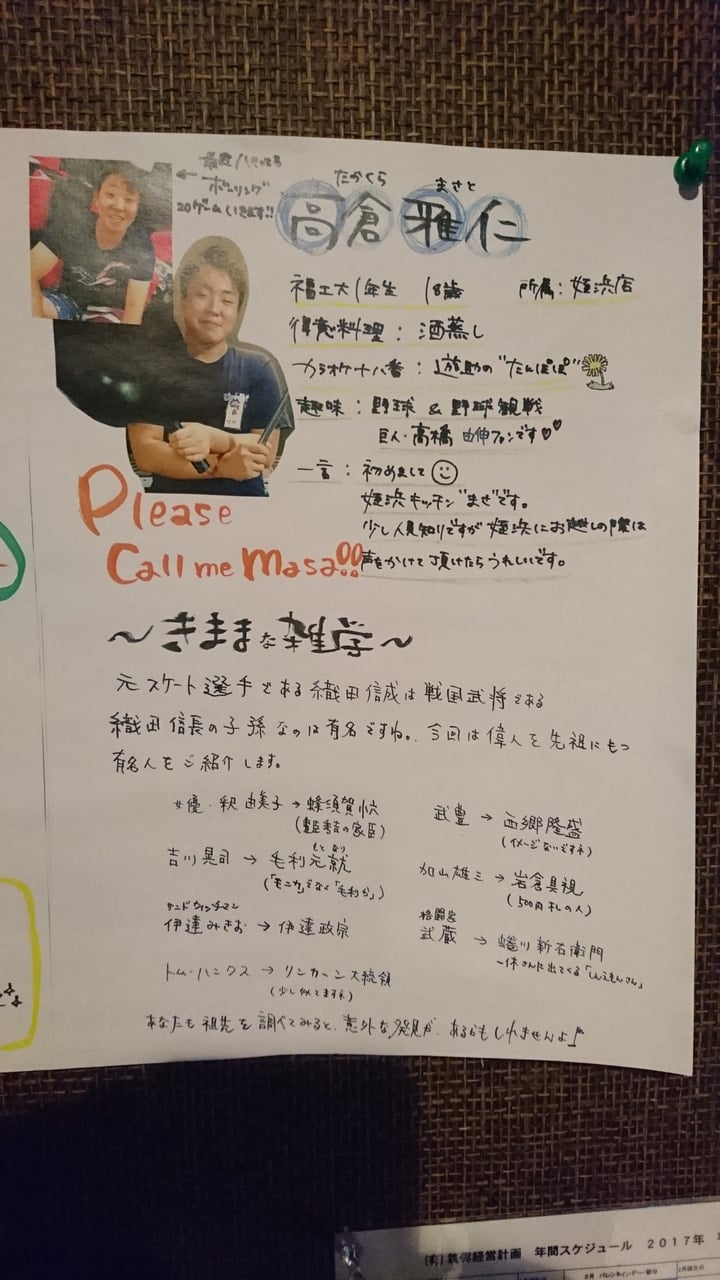 ボーリング
20ゲームしてきます!!
たかくら まさと
高倉雅仁
福工大1年生 18歳 所属:姪浜店
得意料理:酒蒸し
カラオケ十八番:遊助の"たんぽぽ"
趣味:野球&野球観戦
巨人・高橋由伸ファンです♡♡
一言:初めまして☺
姪浜キッチン"まさ"です。
少し人見知りですが姪浜にお越しの際は
声をかけて頂けたらうれしいです。
Please
Call me Masa!!
~きままな雑学~
元スケート選手である織田信成は戦国武将である
織田信長の子孫なのは有名ですね。今回は偉人を先祖にもつ
有名人をご紹介します。
女優・釈由美子→蜂須賀小六
(豊臣秀吉の家臣)
武豊→西郷隆盛
(イメージないですネ)
もとなり
吉川晃司→毛利元就
(「モニカ」でなく「毛利か」)
加山雄三→岩倉具視
(500円札の人)
サンドウィッチマン
伊達みきお→伊達政宗
格闘家
武蔵→蜷川新右衛門
一休さんに出てくる「しんえもんさん」
トム・ハンクス→リンカーン大統領
(少し似てますネ)
あなたも祖先を調べてみると、意外な発見が、あるかもしれませんよ♪
年間スケジュール 2017年